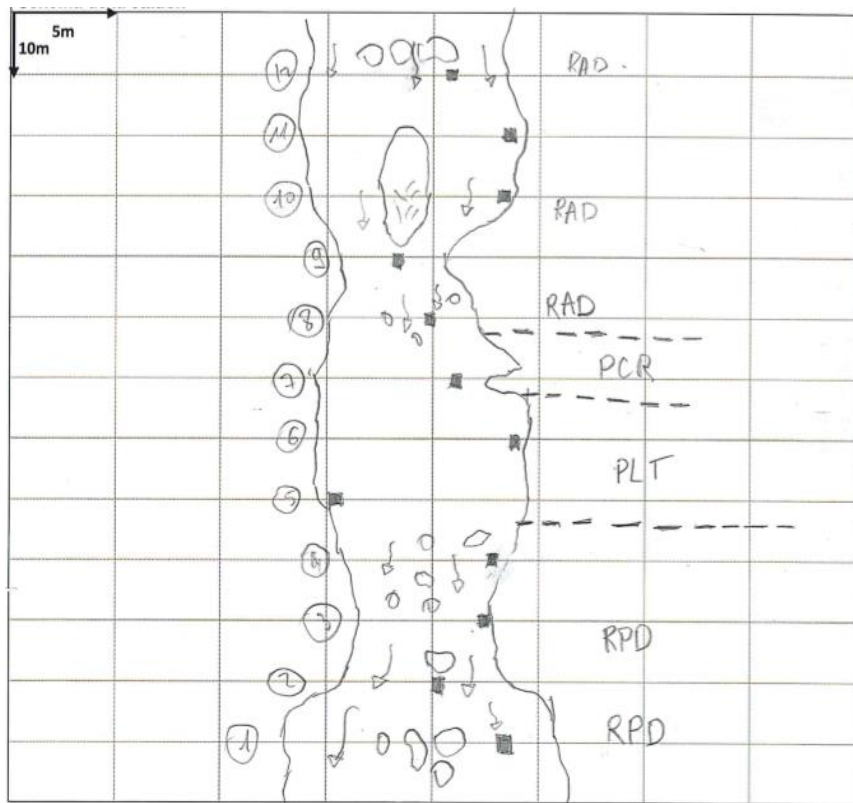 5m
10m
12 RAD.
11
10 RAD
9
8 RAD
PCR
7
6
PLT
5
4
3
RPD
2
1 RPD